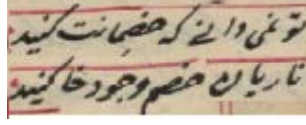 تو نمی دانی که خصمانت کنید
ناریان خصم وجود خاکیند